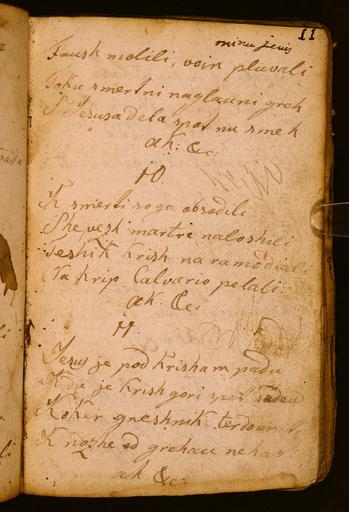 11
minu jenis
Fausk molili, voin pluvali
Toku smertni naglauni greh
S Jesusa dela spot nu smeh
ah: &c:
10.
K smerti soga obsodili
She vezh martre naloshili
Teshik krish na ramo diali
Na krip Calvario pelali
ah: &c:
11
Jesus je pod krisham padu
K du je krish gori
Koker greshnik
K nozhe od grehau nehat
ah &c: